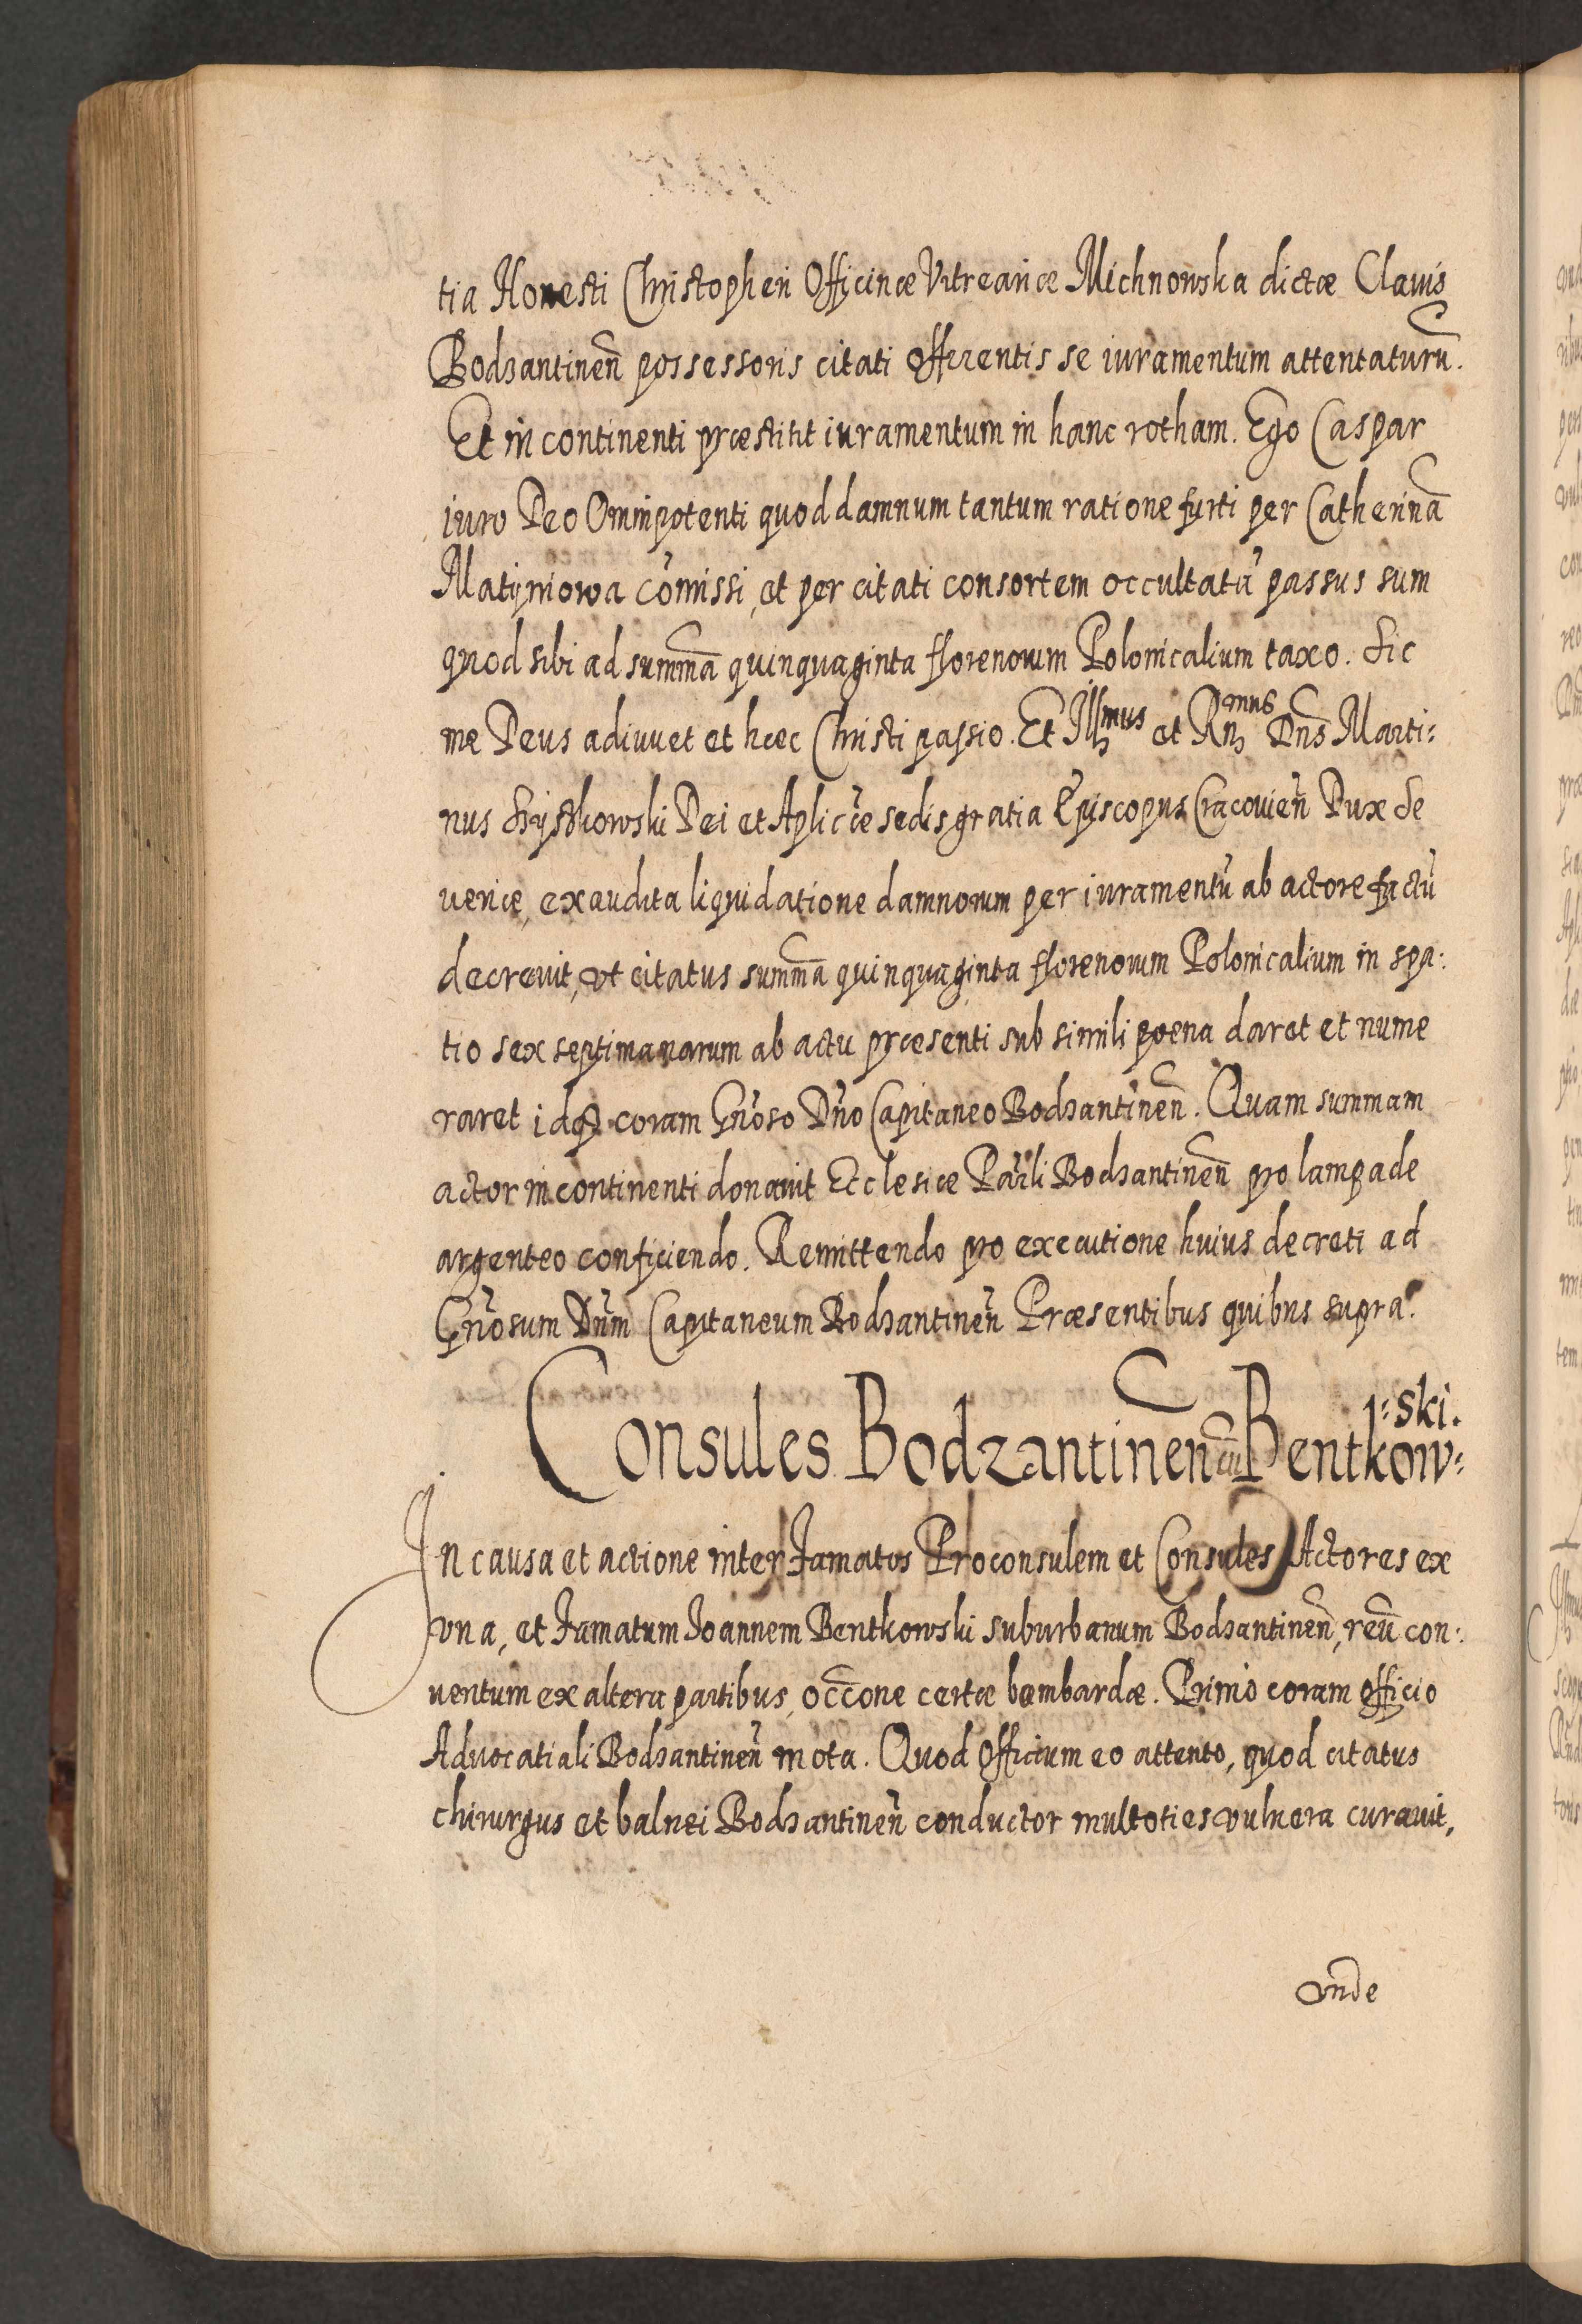 tia Honesti Christopheri Officinæ Vitreariæ Michnowska dictæ Clauis
Bodzantinen̄ possessoris citati offerentis se iuramentum attentaturū.
Et in continenti præstitit iuramentum in hanc rotham. Ego Caspar
iuro Deo Omnipotenti quod damnum tantum ratione furti per Catherinā
Matyniowa com̄issi, et per citati consortem occultatū passus sum
quod sibi ad summā quinquaginta florenorum Polonicalium taxo. Sic
me Deus adiuuet et hæc Christi passio. Et Illmus et Rnmus Dn̄s Marti:
nus Szyszkowski Dei et Aplicæ sedis gratia Episcopus Cracouien̄ Dux Se
ueriæ, exaudita liquidatione damnorum per iuramentū ab actore factū
decreuit, vt citatus summā quinquaginta florenorum Polonicalium in spa:
tio sex septimanarum ab actu præsenti sub simili poena daret et nume
raret idq̃ coram Gn̄oso Dn̄o Capitaneo Bodzantinen̄. Quam summam
actor in continenti donauit Ecclesiæ Parli Bodzantinen̄ pro lampade
argenteo conficiendo. Remittendo pro executione huius decreti ad
Gn̄osum Dn̄m Capitaneum Bodzantinen̄ Præsentibus quibus supra.
Consules Bodzantinen̄ cū Bentkow:
:ski.
In causa et actione inter Famatos Proconsulem et Consules Actores ex
vna, et Famatum Ioannem Bentkowski suburbanum Bodzantinen̄, reū con:
uentum ex altera partibus, occ̄one certæ bombardæ. Primo coram officio
Aduocatiali Bodzantinen̄ mota. Quod officium eo attento, quod citatus
chirurgus et balnei Bodzantinen̄ conductor multoties vulnera curauit,
vnde